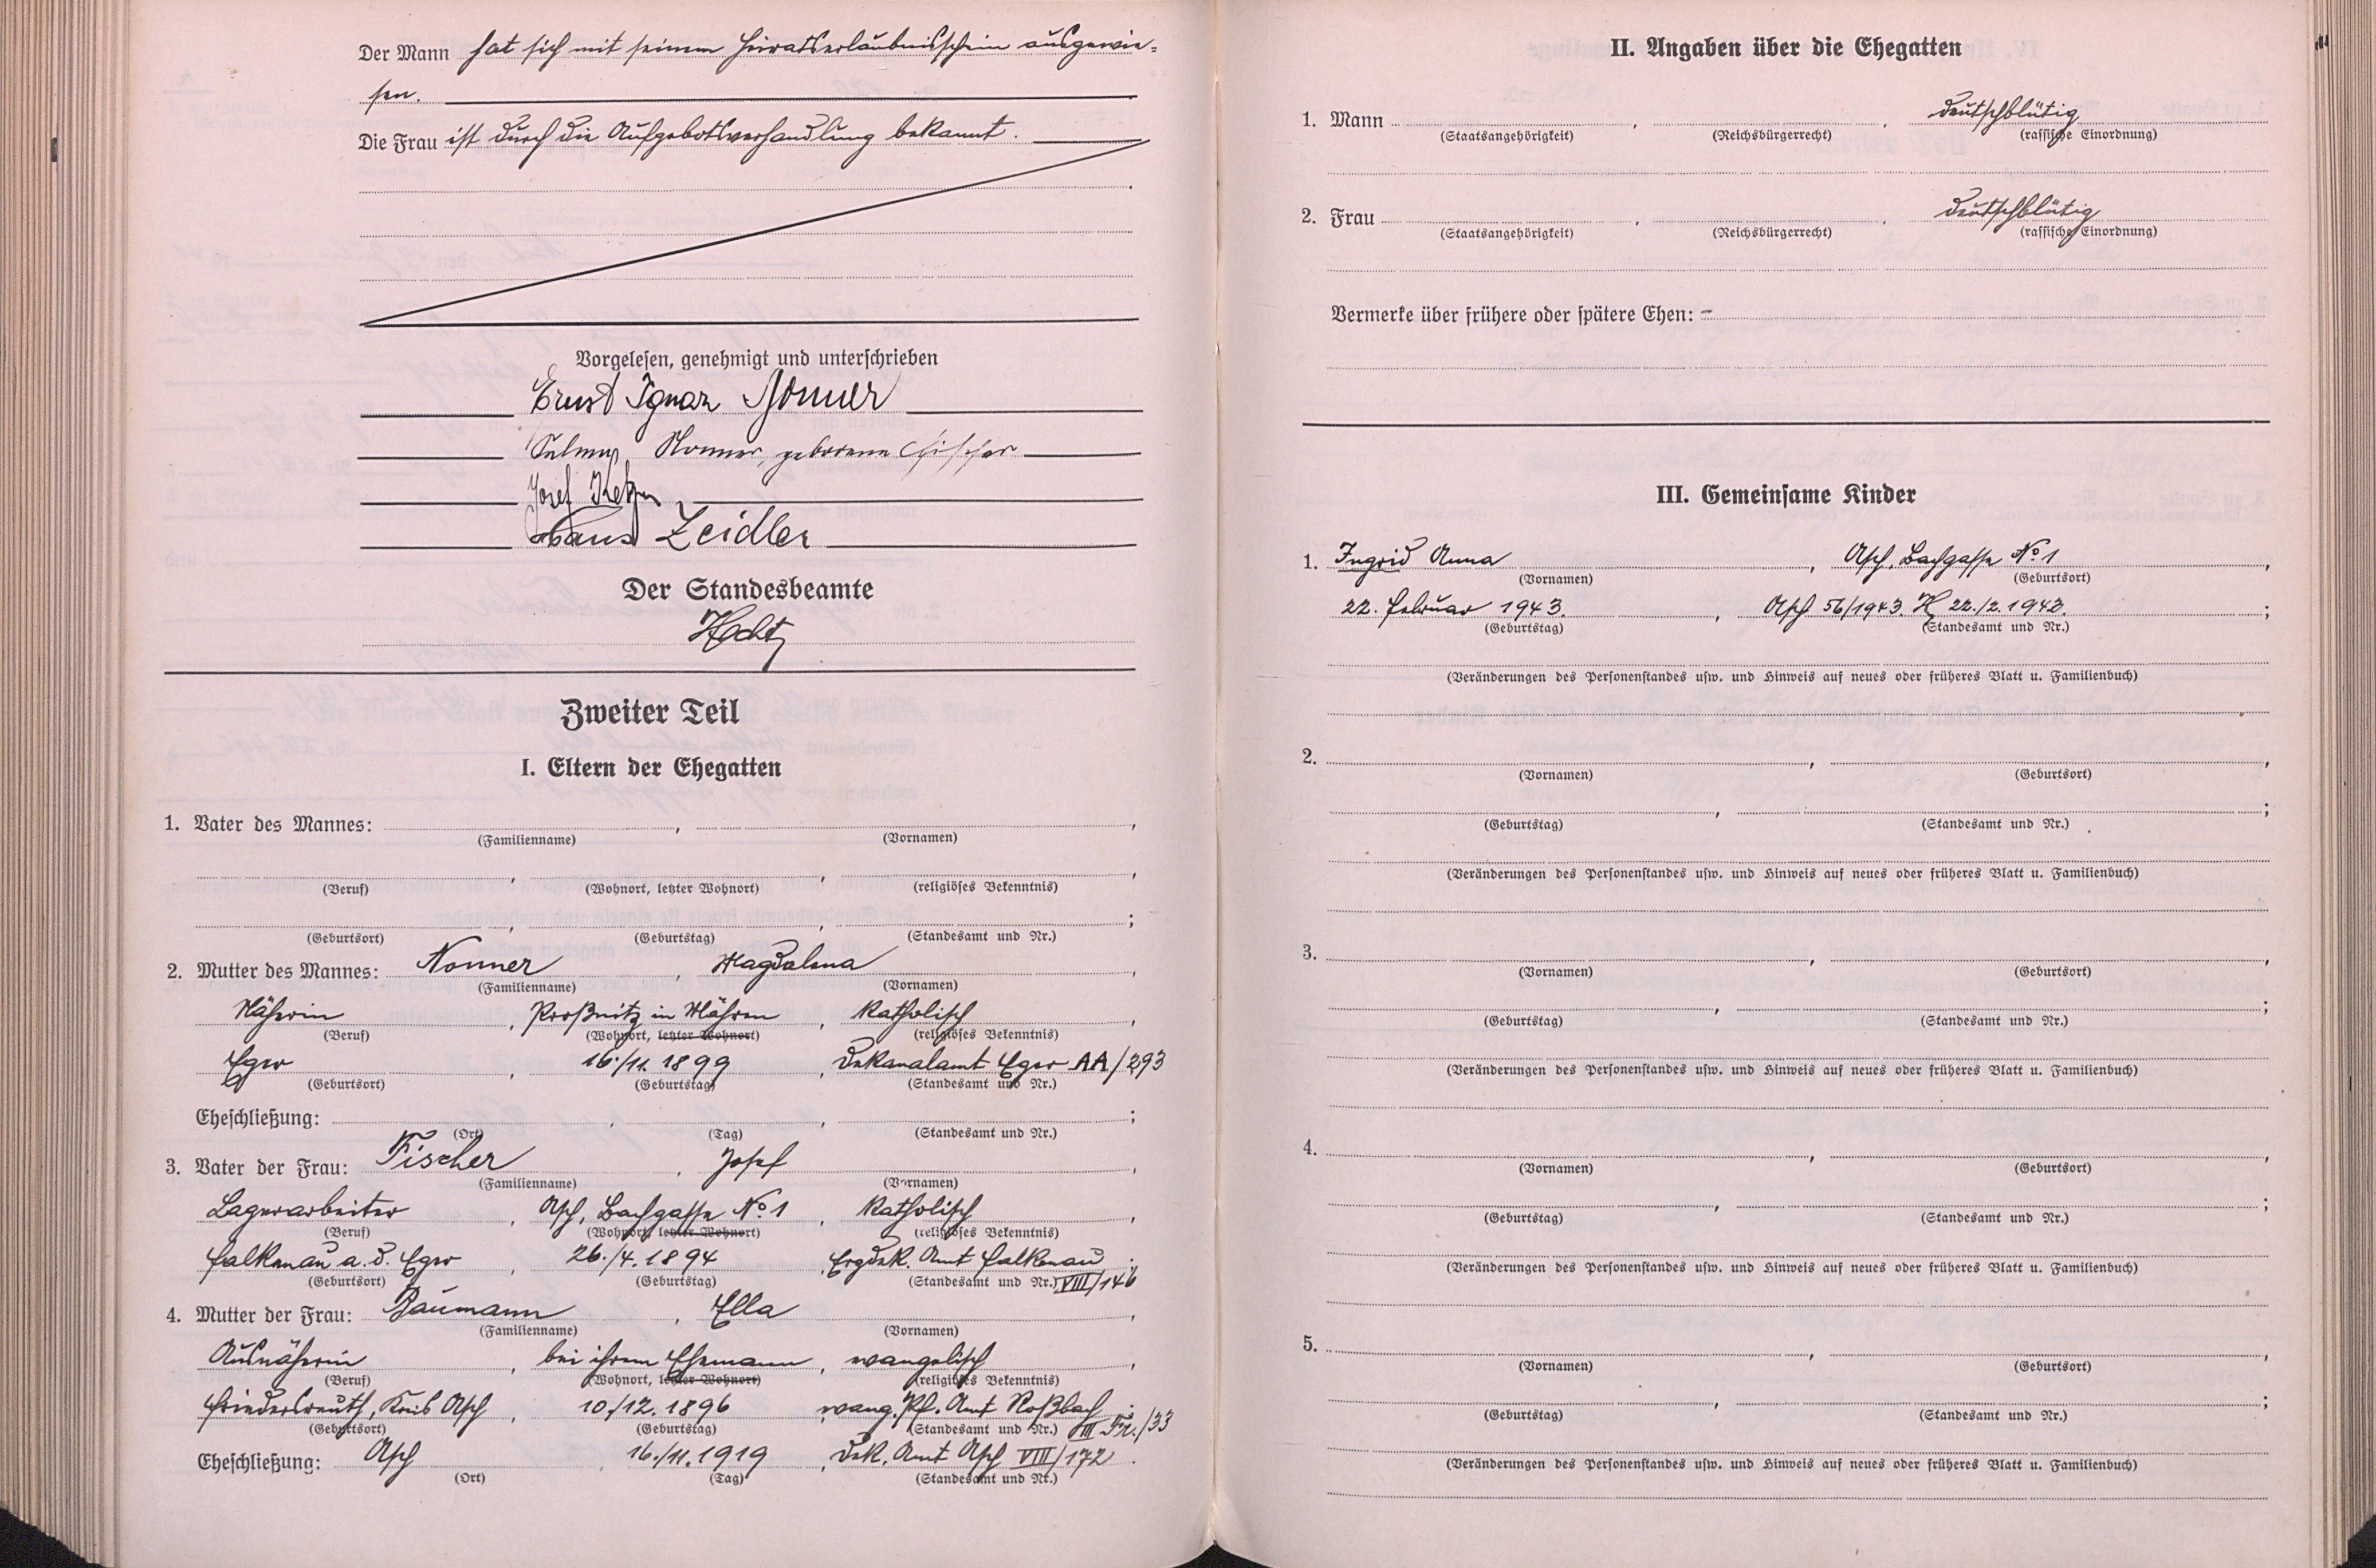 Der Mann hat sich mit seinem Heiratserlaubnisschein ausgewie=
sen.
Die Frau ist durch die Aufgebotsverhandlung bekannt.
Vorgelesen, genehmigt und unterschrieben
Ernst Ignaz Nonner
Nonner, geborene Fischer
Josef
Hans Zeidler
Der Standesbeamte
Zweiter Teil
I. Eltern der Ehegatten
1. Vater des Mannes: , ,
(Familienname) (Vornamen)
(Beruf) (Wohnort, letzter Wohnort) (religiöses Bekenntnis)
(Geburtsort) (Geburtstag) (Standesamt und Nr.)
2. Mutter des Mannes: Nonner, Magdalena,
(Familienname) (Vornamen)
Näherin, Proßnitz in Mähren, katholisch,
(Beruf) (Wohnort, letzter Wohnort) (religiöses Bekenntnis)
Eger, 16./11. 1899, Dekanalamt Eger AA/293
(Geburtsort) (Geburtstag) (Standesamt und Nr.)
Eheschließung: , , ;
(Ort) (Tag) (Standesamt und Nr.)
3. Vater der Frau: Fischer, Josef,
(Familienname) (Vornamen)
Lagerarbeiter, Asch, Bachgasse No. 1, katholisch,
(Beruf) (Wohnort, letzter Wohnort) (religiöses Bekenntnis)
Falkenau a. d. Eger, 26./4. 1894, Erzdek. Amt Falkenau;
(Geburtsort) (Geburtstag) (Standesamt und Nr.) VIII/146
4. Mutter der Frau: Baumann, Ella,
(Familienname) (Vornamen)
Ausnäherin, bei ihrem Ehemann, evangelisch,
(Beruf) (Wohnort, letzter Wohnort) (religiöses Bekenntnis)
Friedersreuth, Kreis Asch, 10./12. 1896, evang. Pf. Amt Roßbach;
(Geburtsort) (Geburtstag) (Standesamt und Nr.) III Fr./33
Eheschließung: Asch, 16./11. 1919, Dek. Amt Asch VIII/172.
(Ort) (Tag) (Standesamt und Nr.)
II. Angaben über die Ehegatten
1. Mann , , deutschblütig
(Staatsangehörigkeit) (Reichsbürgerrecht) (rassische Einordnung)
2. Frau , , deutschblütig
(Staatsangehörigkeit) (Reichsbürgerrecht) (rassische Einordnung)
Vermerke über frühere oder spätere Ehen: -
III. Gemeinsame Kinder
1. Ingrid Anna, Asch, Bachgasse No. 1,
(Vornamen) (Geburtsort)
22. Februar 1943., Asch 56/1943. H 22./2. 1943.;
(Geburtstag) (Standesamt und Nr.)
(Veränderungen des Personenstandes usw. und Hinweis auf neues oder früheres Blatt u. Familienbuch)
2. , ,
(Vornamen) (Geburtsort)
(Geburtstag) (Standesamt und Nr.)
(Veränderungen des Personenstandes usw. und Hinweis auf neues oder früheres Blatt u. Familienbuch)
3. , ,
(Vornamen) (Geburtsort)
(Geburtstag) (Standesamt und Nr.)
(Veränderungen des Personenstandes usw. und Hinweis auf neues oder früheres Blatt u. Familienbuch)
4. , ,
(Vornamen) (Geburtsort)
(Geburtstag) (Standesamt und Nr.)
(Veränderungen des Personenstandes usw. und Hinweis auf neues oder früheres Blatt u. Familienbuch)
5. , ,
(Vornamen) (Geburtsort)
(Geburtstag) (Standesamt und Nr.)
(Veränderungen des Personenstandes usw. und Hinweis auf neues oder früheres Blatt u. Familienbuch)